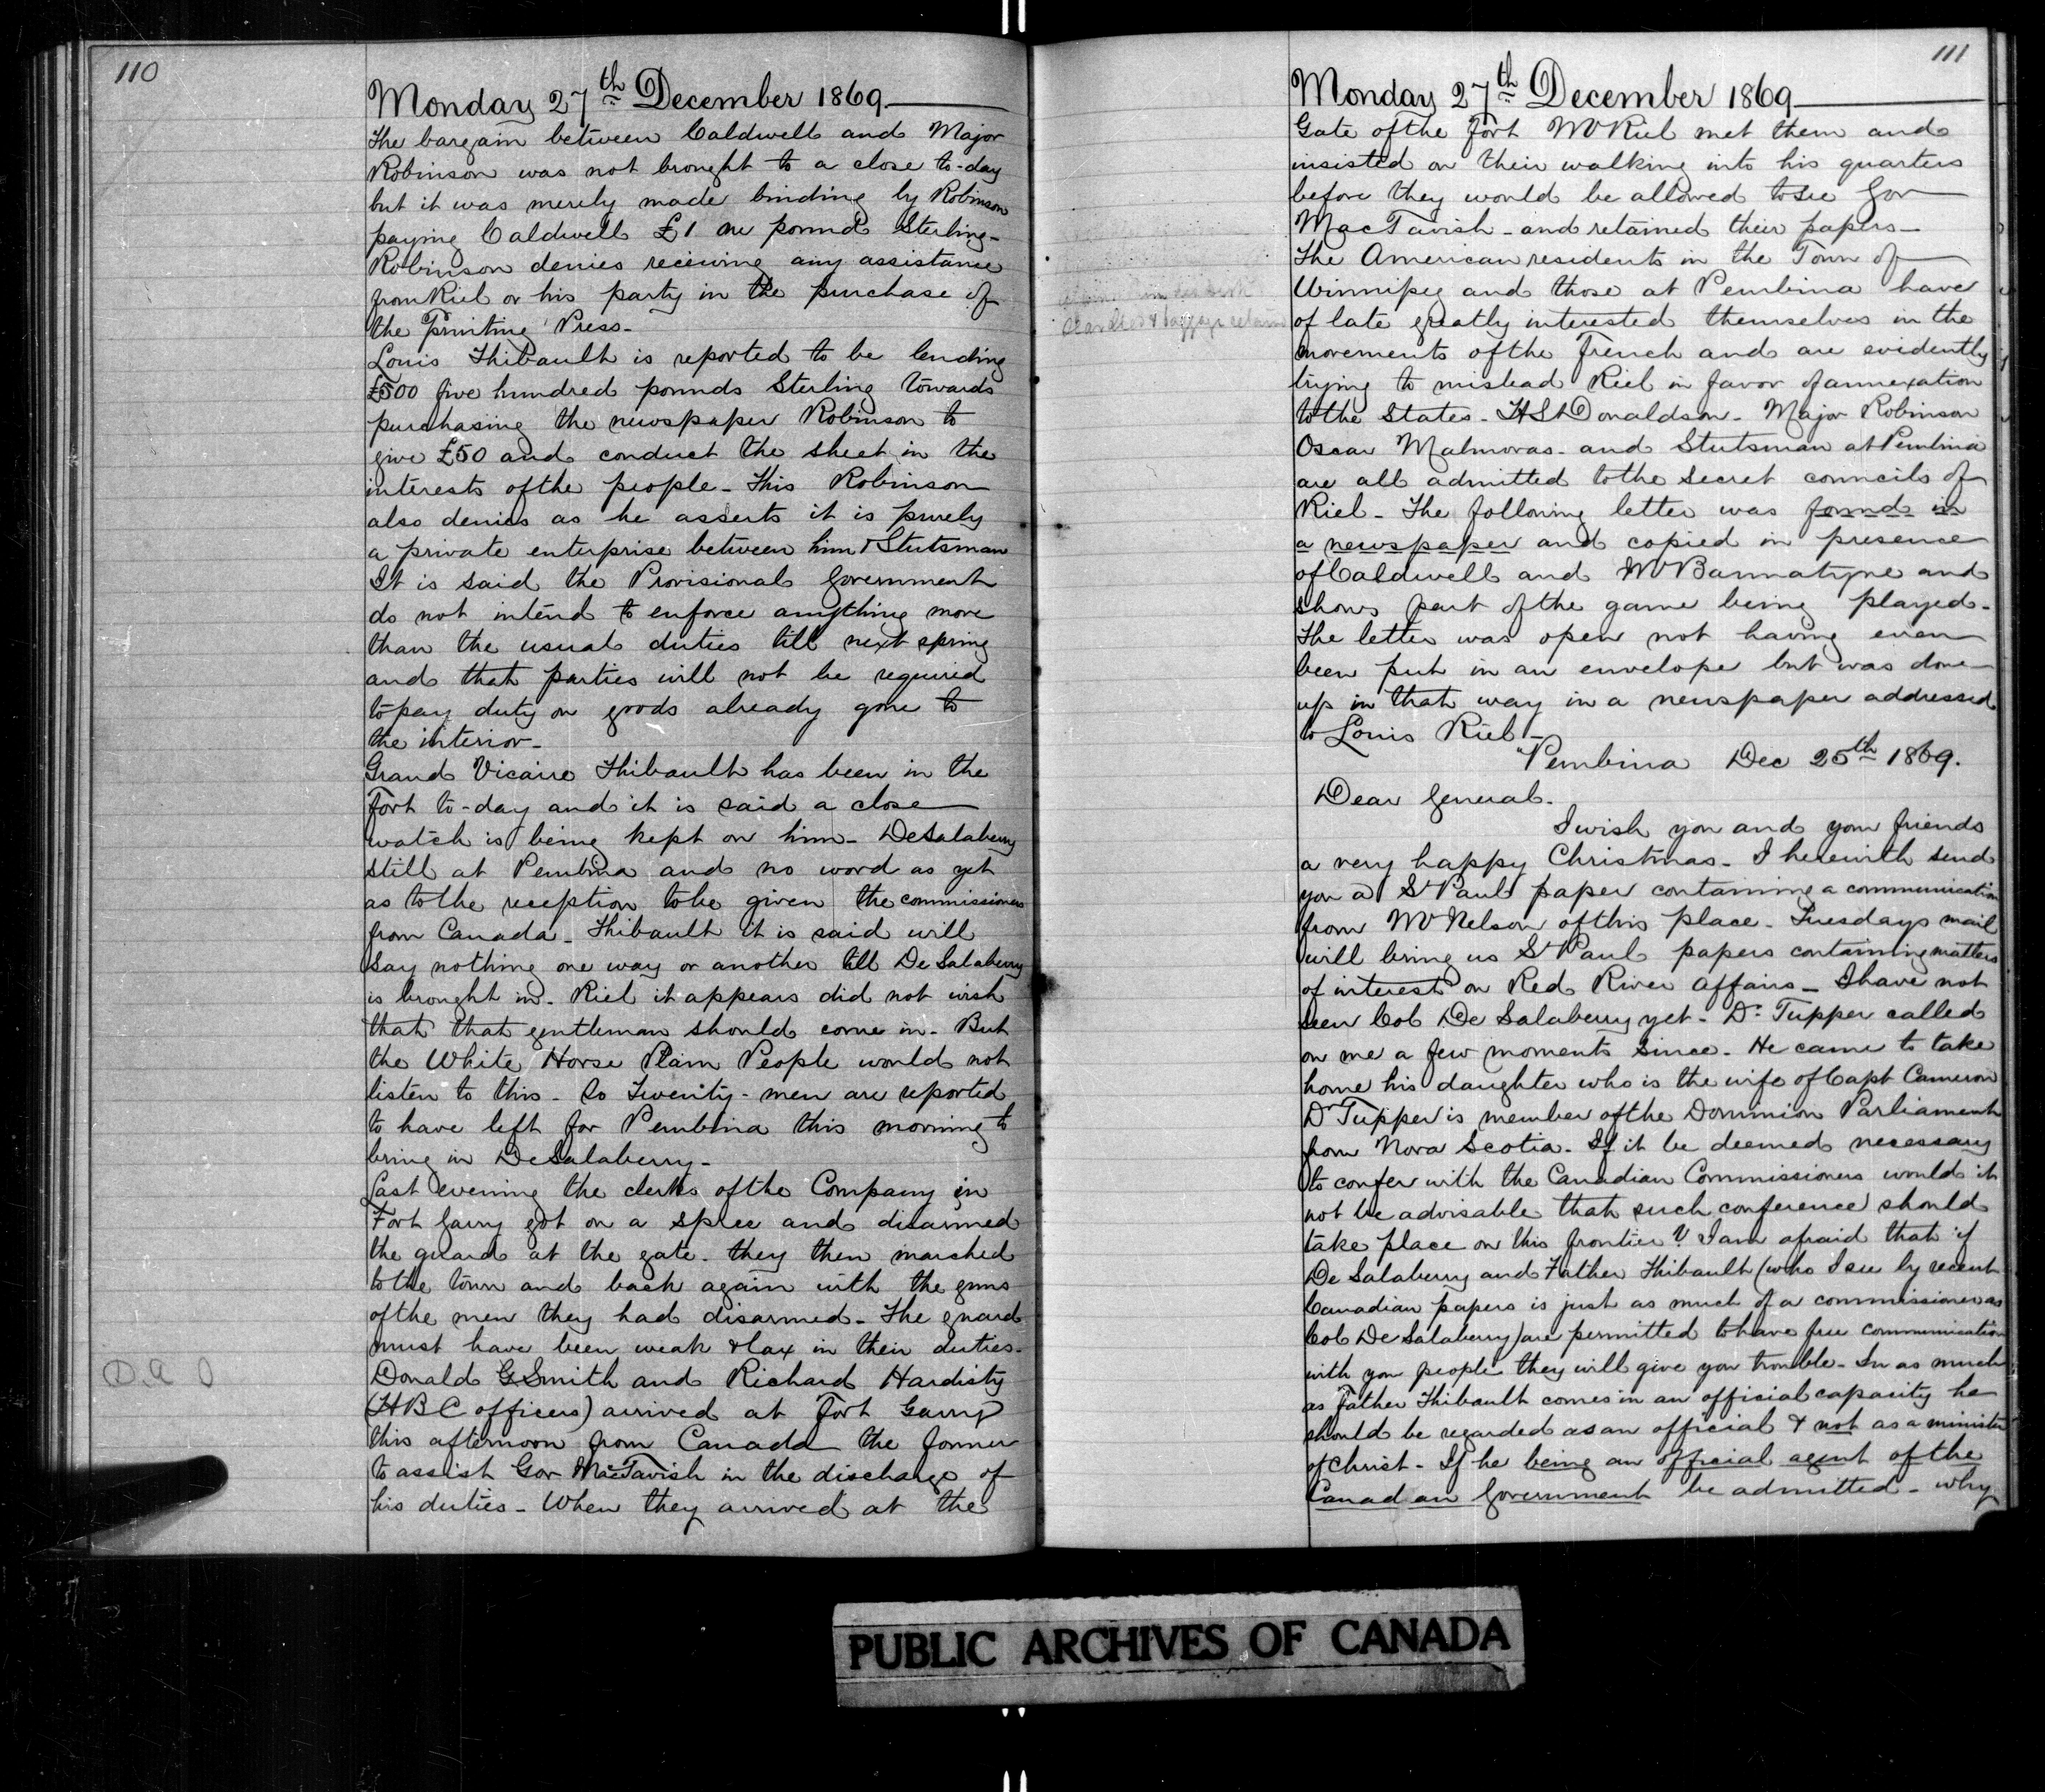 110
Monday 27th December 1869
The bargain between Caldwell and Major
Robinson was not brought to a close to-day
but it was merely made binding by Robinson
paying Caldwell £1 one pound Sterling-
Robinson denies receiving any assistance
from Riel or his party in the purchase of
the Printing Press-
Louis Thibault is reported to be lending
£500 five hundred pounds Sterling towards
purchasing the newspaper Robinson to
give £50 and conduct the sheet in the
interests of the people- This Robinson
also denies as he asserts it is purely
a private enterprise between him & Stutsman
It is said the Provisional Government
do not intend to enforce anything more
than the usual duties till next spring
and that parties will not be required
to pay duty on goods already gone to
the interior-
Grand Vicaire Thibault has been in the
Fort to-day and it is said a close
watch is being kept on him- DeSalaberry
still at Pembina and no word as yet
as to the reception to be given the commissioners
from Canada- Thibault it is said will
say nothing one way or another till De Salaberry
is brought in- Riel it appears did not wish
that that gentleman should come in- But
the White Horse Plain People would not
listen to this- So Twenty-men are reported
to have left for Pembina this morning to
bring in DeSalaberry-
Last evening the clerks of the Company in
Fort Garry got on a spree and disarmed
the guard at the gate- they then marched
to the town and back again with the guns
of the men they had disarmed- The guard
must have been weak & lax in their duties-
D.A
Donald G Smith and Richard Hardisty
(HBC officers) arrived at Fort Garry
this afternoon from Canada the former
to assist Gov MacTavish in the discharge of
his duties- When they arrived at the
111
Monday 27th December 1869
Gate of the Fort Mr Riel met them and
insisted on their walking into his quarters
before they would be allowed to see Gov
MacTavish- and retained their papers-
The American residents in the Town of
Winnipeg and those at Pembina have
of late greatly interested themselves in the
movements of the French and are evidently
trying to mislead Riel in favor of annexation
to the States- H St Donaldson- Major Robinson
Oscar Malmoras- and Stutsman at Pembina
are all admitted to the secret councils of
Riel- The following letter was found in
a newspaper and copied in presence
of Caldwell and Mr Bannatyne and
shows part of the game being played-
The letter was open not having even
been put in an envelope but was done
up in that way in a newspaper addressed
to Louis Riel-
"Pembina Dec 25th 1869.
Dear General.
I wish you and your friends
a very happy Christmas- I herewith send
you a St Paul paper containing a communication
from Mr Nelson of this place- Tuesdays mail
will bring us St Paul papers containing matters
of interest on Red River affairs- I have not
seen Col De Salaberry yet- Dr Tupper called
on me a few moments since- He came to take
home his daughter who is the wife of Capt Cameron
Dr Tupper is member of the Dominion Parliament
from Nova Scotia- If it be deemed necessary
to confer with the Canadian Commissioners would it
not be advisable that such conference should
take place on this frontier? I am afraid that if
De Salaberry and Father Thibault (who I see by recent
Canadian papers is just as much of a commissioner as
Col De Salaberry) are permitted to have free communication
with you people they will give you trouble- In as much
as Father Thibault comes in an official capacity he
should be regarded as an official & not as a minister
of Christ- If he being an official agent of the
Canadian Government be admitted- why
PUBLIC ARCHIVES OF CANADA